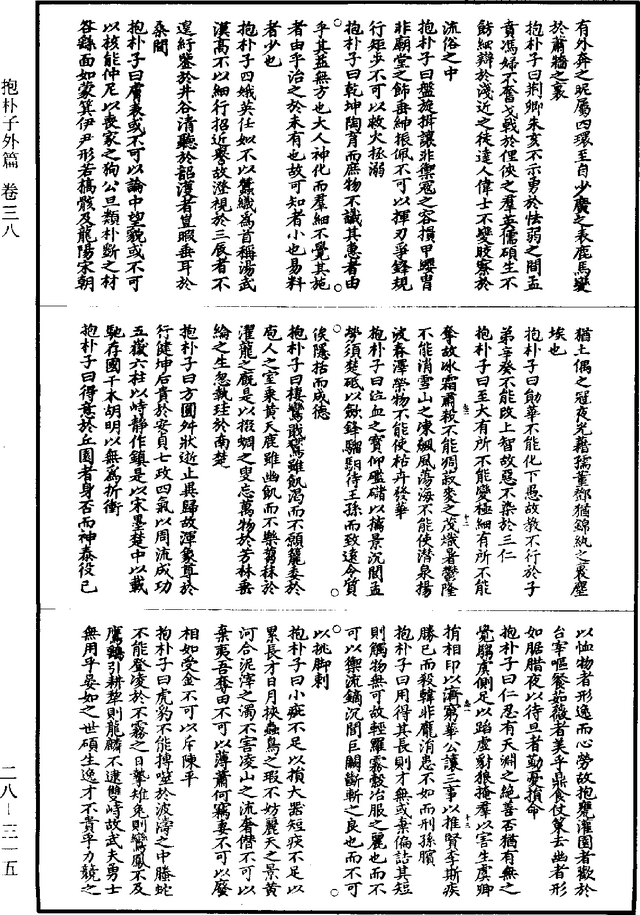 有外奔之昵屬四環至自少廣之表鹿馬變
於蕭牆之裏
抱朴子曰荆卿朱亥不示勇於怯弱之閒孟
賁馮婦不奮戈戟於俚俠之羣英儒碩生不
飭細辯於淺近之徒達人偉士不變皎察於
流俗之中
抱朴子曰盤旋揖讓非禦寇之容摜甲纓胄
非廟堂之飾垂紳振佩不可以揮刃爭鋒規
行矩步不可以救火拯溺
抱朴子曰乾坤陶育而庶物不識其惠者由
乎其益無方也大人神化而羣細不覺其施
者由乎治之於未有也故可知者小也易料
者少也
抱朴子四娥英任姒不以蠶織爲首稱湯武
漢高不以細行招近譽故澄視於三辰者不
遑紆鑒於井谷清聽於韶濩者豈暇垂耳於
桑閒
抱朴子曰膚表或不可以論中望貌或不可
以核能仲尼似喪家之狗公旦類朴斲之材
咎繇面如蒙箕伊尹形若槁骸及龍陽宋朝
猶土偶之冠夜光藉孺董鄧猶錦紈之裹塵
埃也
抱朴子曰勛華不能化下愚故敎不行於子
弟辛癸不能改上智故惡不染於三仁
抱朴子曰至大有所不能變極細有所不能
奪故冰霜肅殺不能凋菽麥之茂熾暑鬱隆
不能消雪山之凍飆風蕩海不能使潛泉揚
波春澤榮物不能使枯卉發華
抱朴子曰泣血之寶仰礛䃴以摛景沉閭孟
勞須楚砥以斂鋒騄駬待王孫而致遠令質
俟隱括而成德
抱朴子曰棲鸞戢鷟雖飢渴而不願籠委於
庖人之室乘黃天鹿雖幽飢而不樂蒭秣於
濯龍之廐是以掇蜩之叟忘萬物於芳林垂
綸之生忽執珪於南楚
抱朴子曰方圓舛狀逝止異歸故渾象尊於
行健坤后貴於安貞七政四氣以周流成功
五嶽六柱以峙靜作鎮是以宋墨楚申以載
馳存國干木胡明以無爲折衝
抱朴子曰得意於丘園者身否而神泰役己
以恤物者形逸而心勞故抱甕灌園者歡於
台宰嘔餐茹薇者美乎鼎食仗策去豳者形
如腒腊夜以待旦者勤憂損命
抱朴子曰仁忍有天淵之絕善否猶有無之
覺騶虞側足以蹈虛豺狼掩羣以害生虞卿
捐相印以濟窮華公讓三事以推賢李斯疾
勝己而殺韓非龐涓患不如而刑孫臏
抱朴子曰用得其長則才無或棄偏詰其短
則觸物無可故輕羅霧縠冶服之麗也而不
可以禦流鏑沉閭巨闕斷斬之良也而不可
以挑脚刺
抱朴子曰小疵不足以損大器短疢不足以
累長才日月挾蟲鳥之瑕不妨麗天之景黄
河合泥滓之濁不害凌山之流耆僭不可以
棄夷吾奪田不可以薄蕭何竊妻不可以廢
相如受金不可以斥陳平
抱朴子曰虎豹不能搏噬於波濤之中騰蛇
不能登凌於不霧之日摰雉兔則鸞鳳不及
鷹鷂引耕犂則龍麟不逮雙峙故武夫勇士
無用乎晏如之世碩生逸才不貴乎力競之
抱朴子外篇 卷三八
二八—三一五